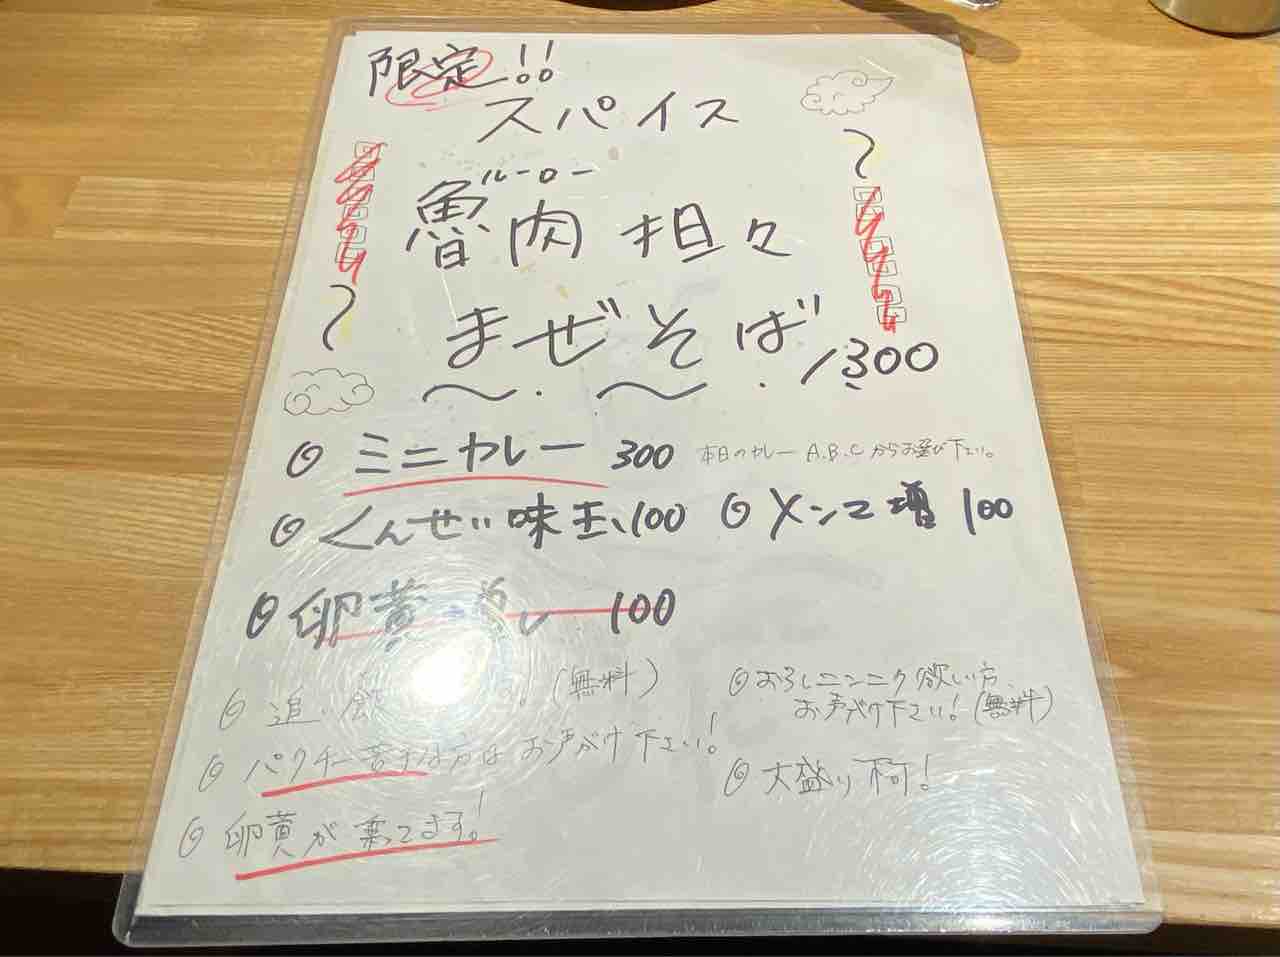 限定!!
スパイス
ルーロー
魯肉担々
まぜそば 1300
ミニカレー 300 本日のカレー A.B.C からお選び下さい。
くんせい味玉 100
メンマ増 100
卵黄 し 100
追い飯 (無料)
おろしニンニク欲しい方、
お声がけ下さい!(無料)
パクチー苦手な方はお声がけ下さい!
大盛り不可!
卵黄が乗ってます!